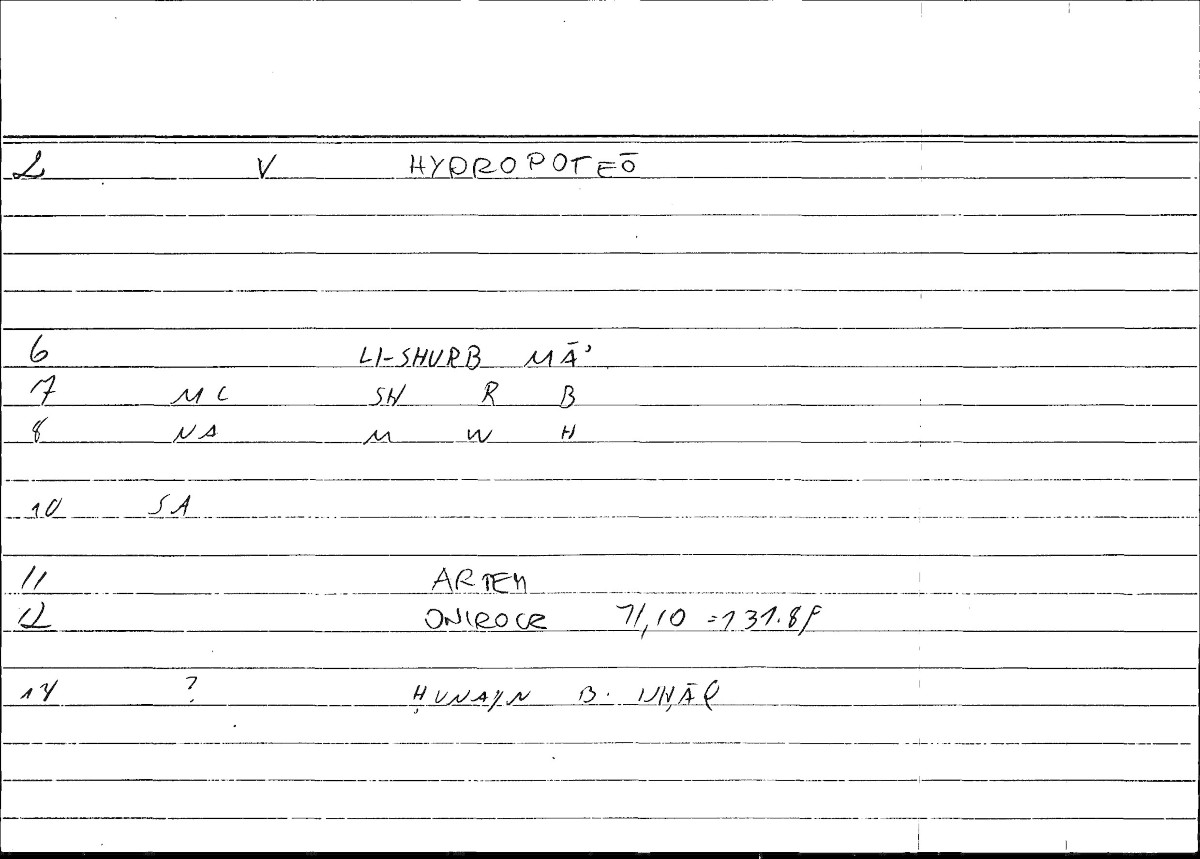 2 V HYDROPOTEŌ
6 LI-SHURB MĀ’
7 MC SH R B
8 NA M W H
10 SA
11 ARTEM
12 ONIROCR 71,10 =131.8f
14 ? ḤUNAYN B. ISḤĀQ